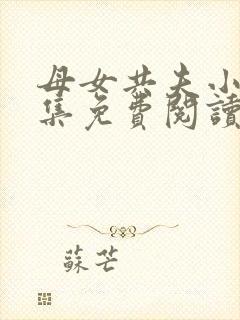 母女共夫小
集免費閱讀
蘇芒